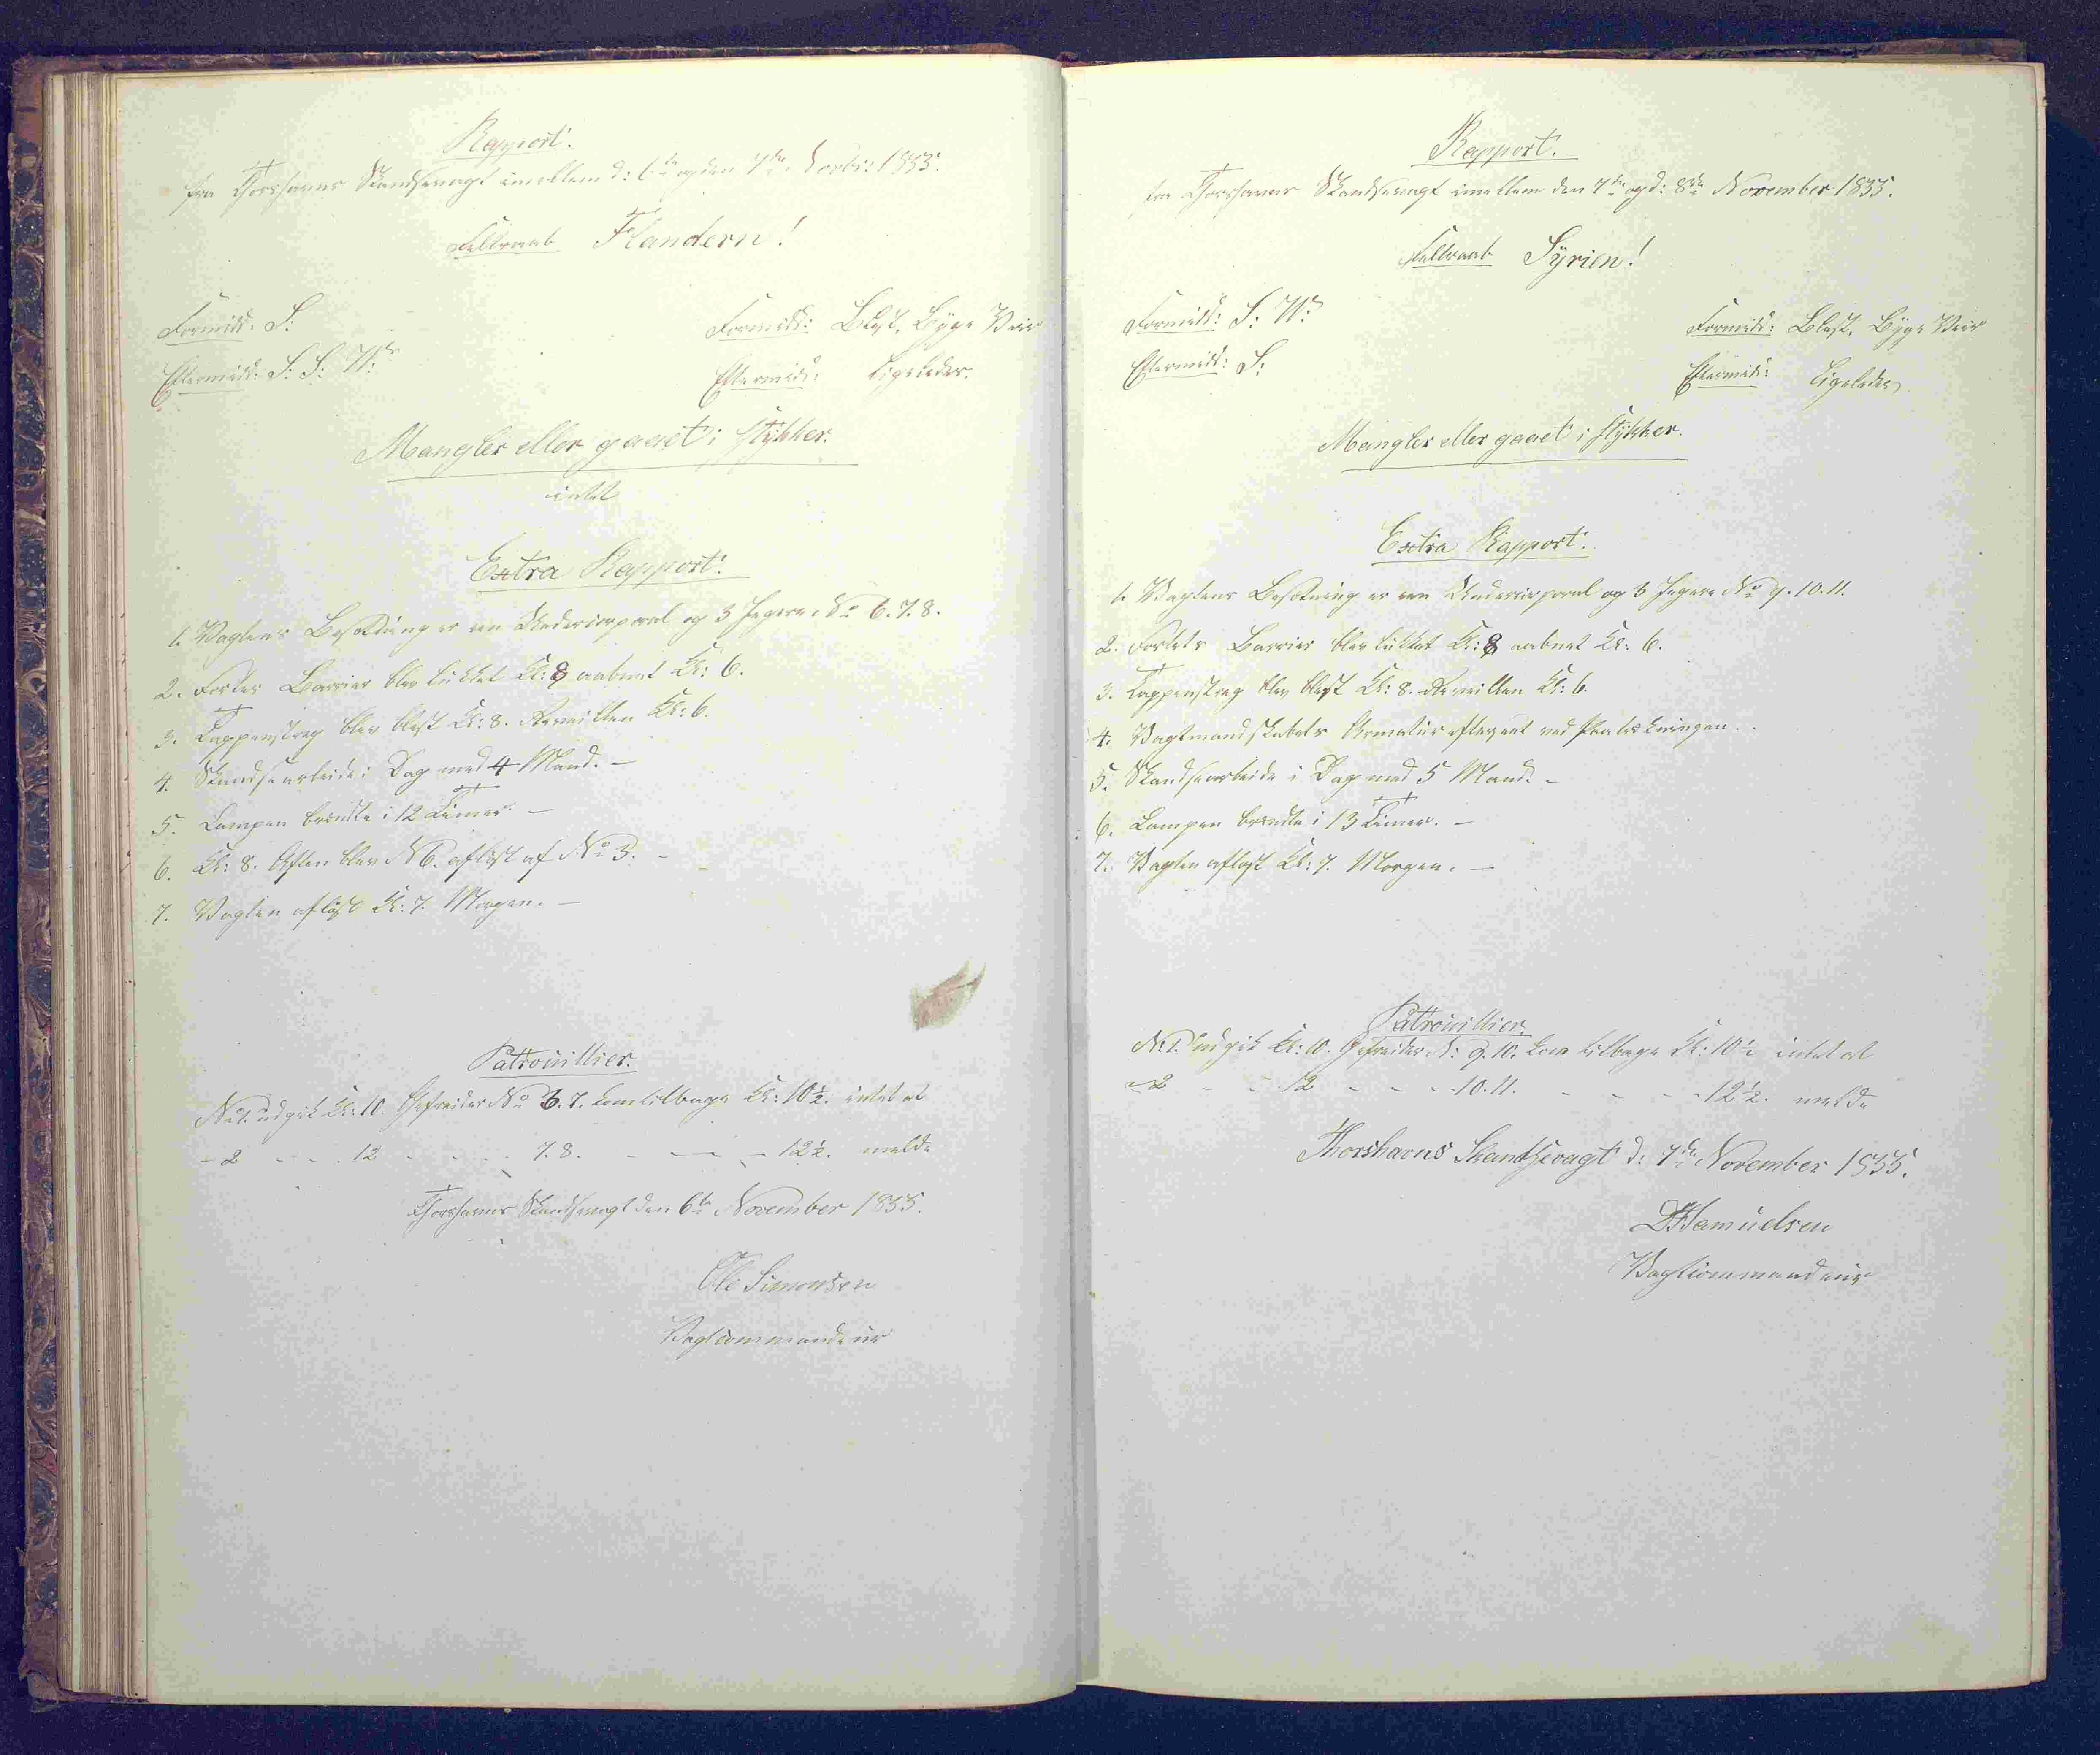 Rapport.
fra Thorshavns Skandsevagt imellem d: 6te og den 7de Novbr: 1855.
Feltraab Flandern!
Formidd: S:
Formidd: Blæst, Byge Veir
Eftermidd: S: S: W:
Eftermidd: ligeledes.
Mangler eller gaaet i stykker.
intet
Extra Rapport.
1. Vagtens Besætning er en Undercorporal og 3 Jægere No 6. 7. 8.
2. Fortes Barrier blev lukket Kl: 8 aabnet Kl: 6.
3. Tappenstreg blev blæst Kl: 8. Reveillen Kl: 6.
4. Skandsearbeide i Dag med 4 Mand. -
5. Lampen brændte i 12 Timer. -
6. Kl: 8. Aften blev N 6. afløst af No 3. -
7. Vagten afløst Kl: 7. Morgen. -
Patrouillier.
No 1. udgik Kl: 10. Gefreider No 6. 7. kom tilbage Kl: 10½. intet at
- 2 - - . 12 - - - . 7. 8. - - - 12½. melde
Thorshavns Skandsevagt den 6te November 1855.
Ole Simonsen
Vagtcommandeur
Rapport.
fra Thorshavns Skandsevagt imellem den 7de og d: 8de November 1855.
Feltraab Syrien!
Formidd: S: W:
Formidd: Blæst, Byge Veir
Eftermidd: S:
Eftermidd: ligeledes,
Mangler eller gaaet i stykker.
Extra Rapport.
1. Vagtens Besætning er een Undercorporal og 3 Jægere No 9. 10. 11.
2. Fortets Barrier blev lukket Kl: 8 aabnet Kl: 6.
3. Tappenstreg blev blæst Kl: 8. Reveillen Kl: 6.
4. Vagtmandskabets Armatur efterseet ved
5. Skandsearbeide i Dag med 5 Mand. -
6. Lampen brændte i 13 Timer. -
7. Vagten afløst Kl: 7. Morgen. -
Patrouillier.
No 1. udgik Kl: 10. Gefreider N: 9. 10. kom tilbage Kl: 10½ intet at
- 2 - - 12 - - - 10. 11. - - - 12½. melde
Thorshavns Skandsevagt d: 7de November 1855.
DHSamuelsen
Vagtcommandeur